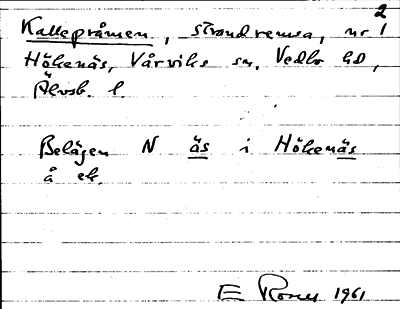 2
Kallepråmen, strandremsa, nr 1
Hökenäs, Vårviks sn, Vedbo hd,
Älvsb. l.
Belägen N äs i Hökenäs
å ek.
E 1961